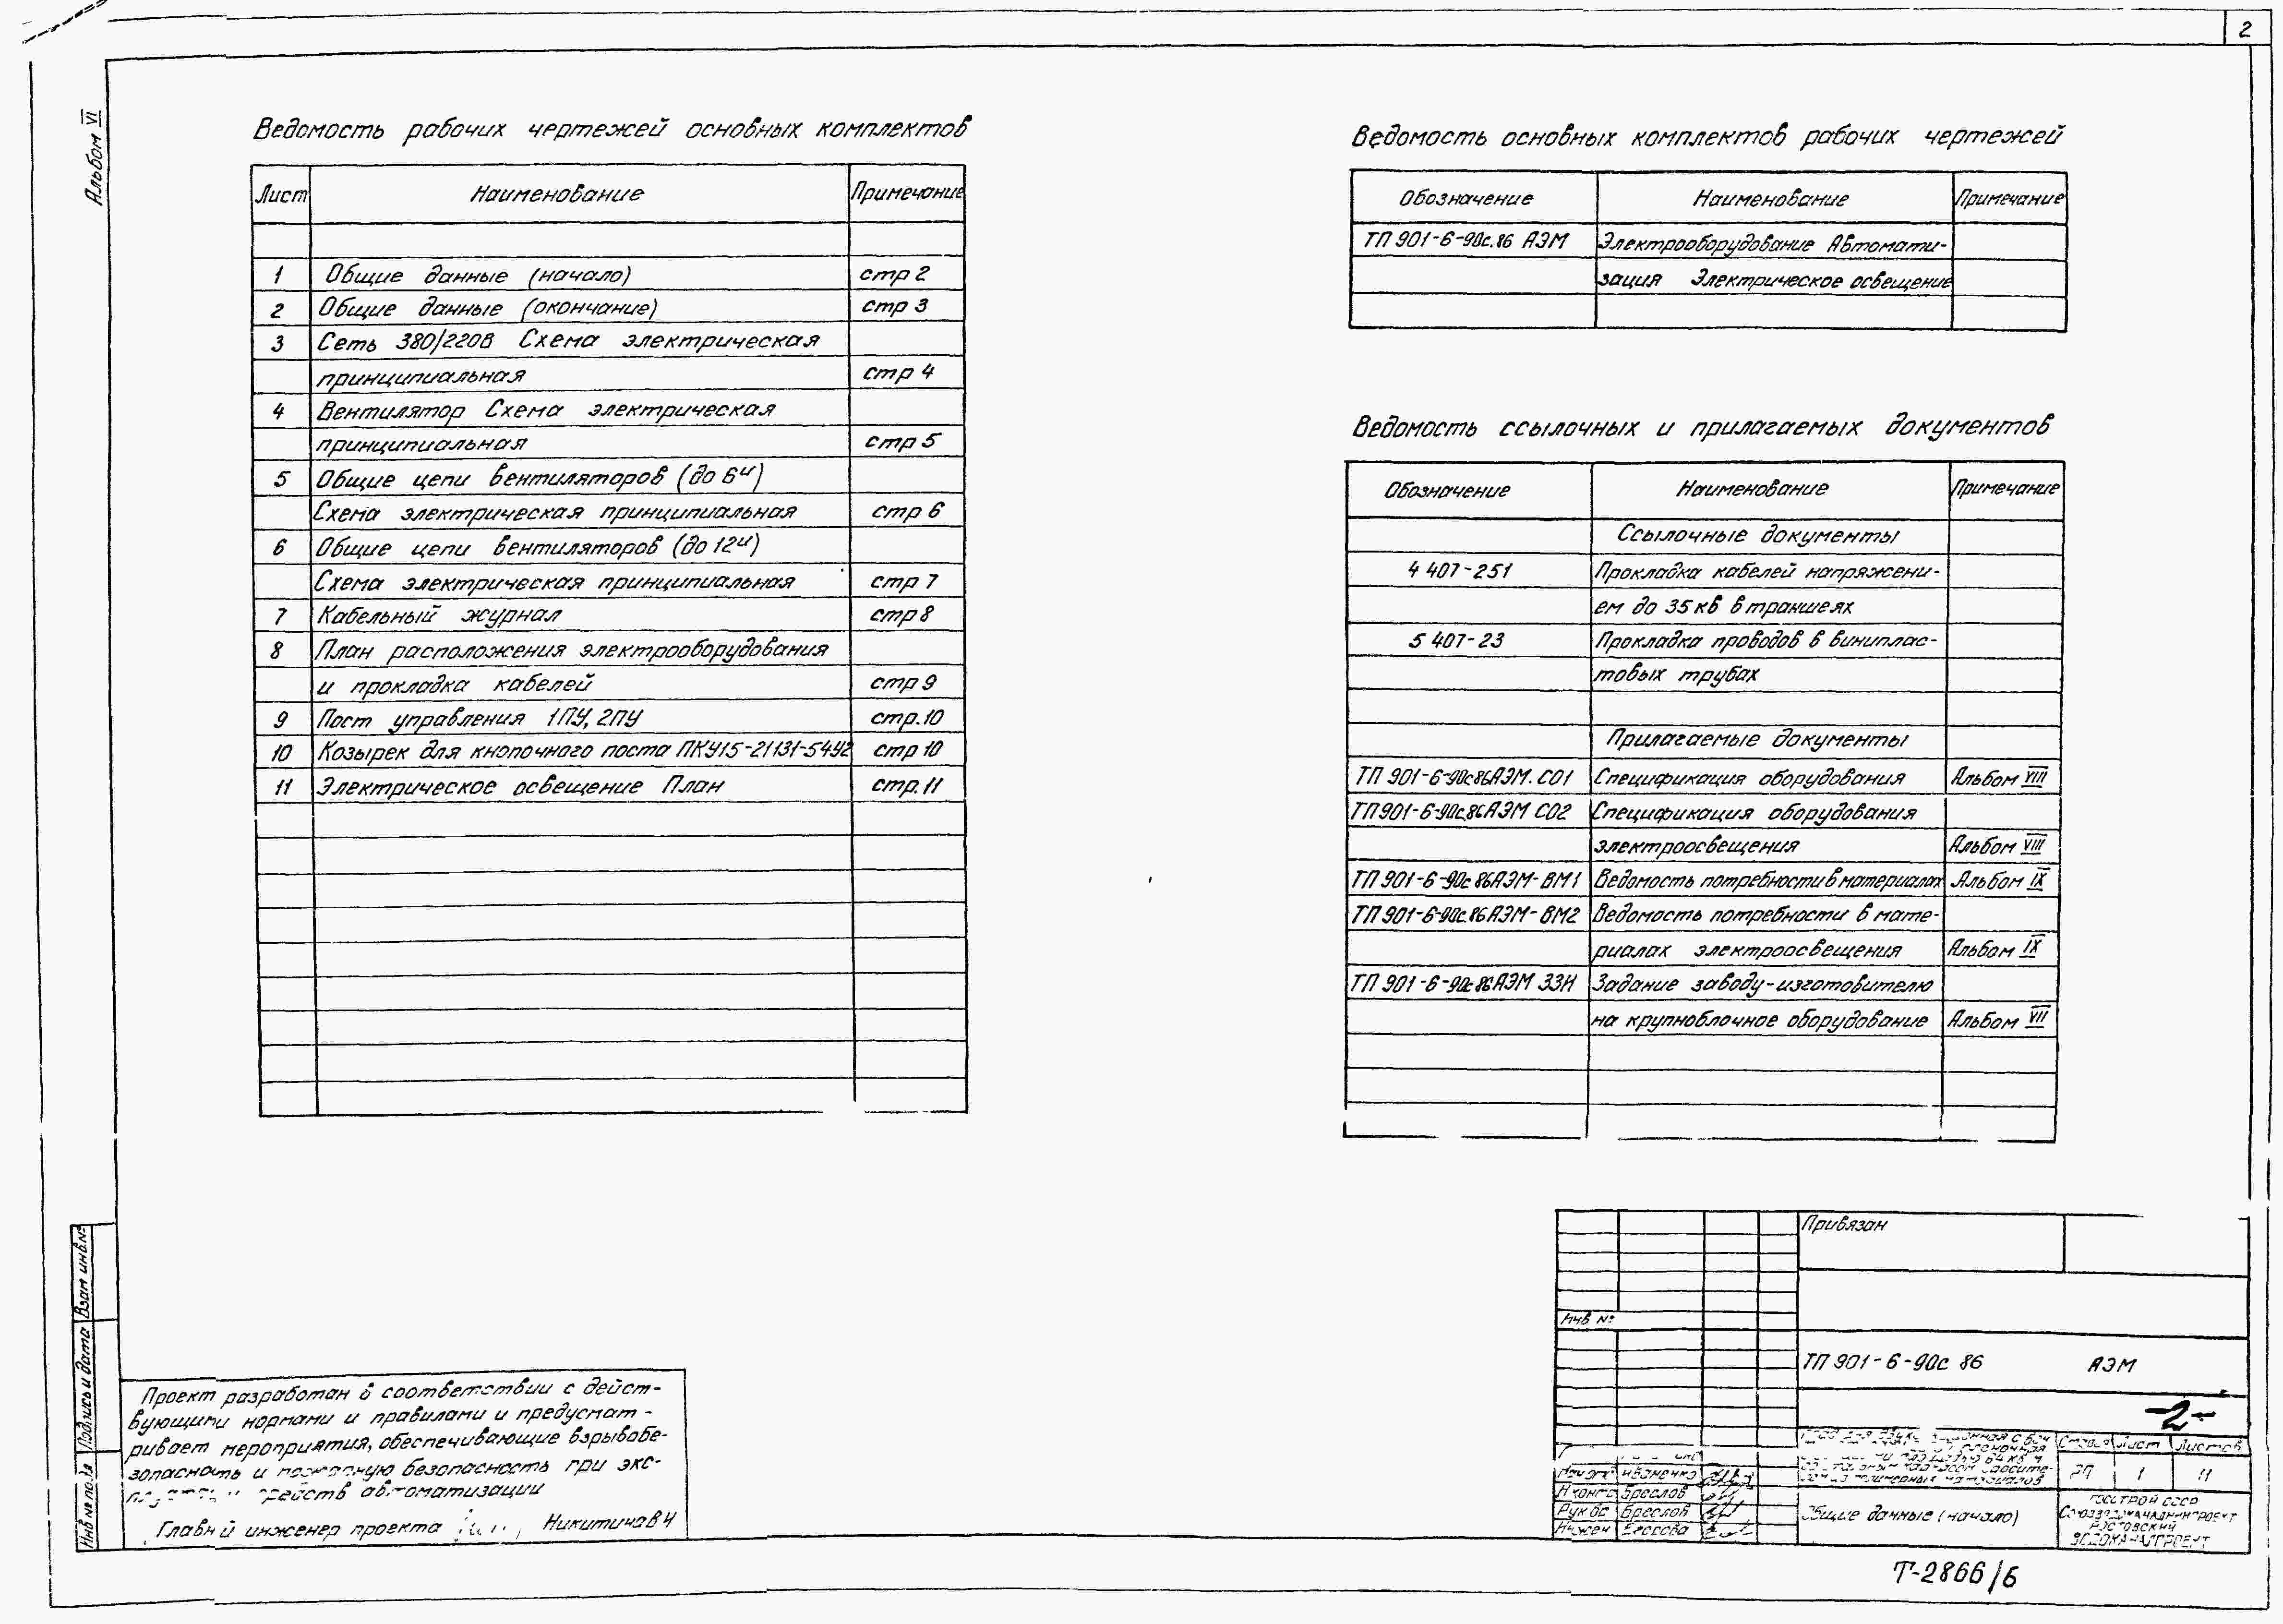 2
Альбом VI
Ведомость рабочих чертежей основных комплектов
Лист Наименование Примечание
1 Общие данные (начало) стр 2
2 Общие данные (окончание) стр 3
3 Сеть 380/220В Схема электрическая
принципиальная стр 4
4 Вентилятор Схема электрическая
принципиальная стр 5
5 Общие цепи вентиляторов (до 6и)
Схема электрическая принципиальная стр 6
6 Общие цепи вентиляторов (до 12и)
Схема электрическая принципиальная стр 7
7 Кабельный журнал стр 8
8 План расположения электрооборудования
и прокладка кабелей стр 9
9 Пост управления 1ПУ, 2ПУ стр. 10
10 Козырек для кнопочного поста ПКУ15-21131-54У2 стр 10
11 Электрическое освещение План стр. 11
Ведомость основных комплектов рабочих чертежей
Обозначение Наименование Примечание
ТП 901-6-90с.86 АЭМ Электрооборудование Автомати-
зация Электрическое освещение
Ведомость ссылочных и прилагаемых документов
Обозначение Наименование Примечание
Ссылочные документы
4 407-251 Прокладка кабелей напряжени-
ем до 35кв в траншеях
5 407-23 Прокладка проводов в виниплас-
товых трубах
Прилагаемые документы
ТП 901-6-90с86АЭМ. СО1 Спецификация оборудования Альбом VIII
ТП901-6-90с.86АЭМ СО2 Спецификация оборудования
электроосвещения Альбом VIII
ТП 901-6-90с 86АЭМ-ВМ1 Ведомость потребности в материалах Альбом IX
ТП 901-6-90с.86АЭМ-ВМ2 Ведомость потребности в мате-
риалах электроосвещения Альбом IX
ТП 901-6-90с86АЭМ ЗЗИ Задание заводу-изготовителю
на крупноблочное оборудование Альбом VII
Взам инв.№
Подпись и дата
Инв № подл
Проект разработан в соответствии с дейст-
вующими нормами и правилами и предусмат-
ривает мероприятия, обеспечивающие взрывобе-
зопасность и пожарную безопасность при экс-
средств автоматизации
Главный инженер проекта Никитича В И
Привязан
Инв №
ТП 901-6-90с 86 АЭМ
-2-
Стадия Лист Листов
РП 1 11
Иваненко
Н контр Бреслов
Рук бр Бреслов
Инжен Егорова
Общие данные (начало)
Госстрой СССР
Союзводоканалниипроект
Ростовский
Водоканалпроект
Т-2866/6